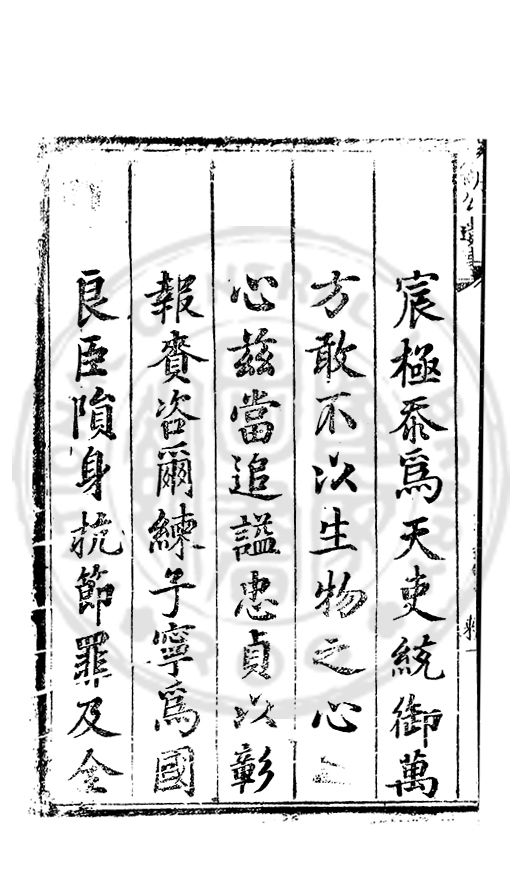 宸極忝爲天吏統御萬
方敢不以生物之心
心兹當追謚忠貞以彰
報賚咨爾練子寧爲國
良臣隕身抗節罪及全